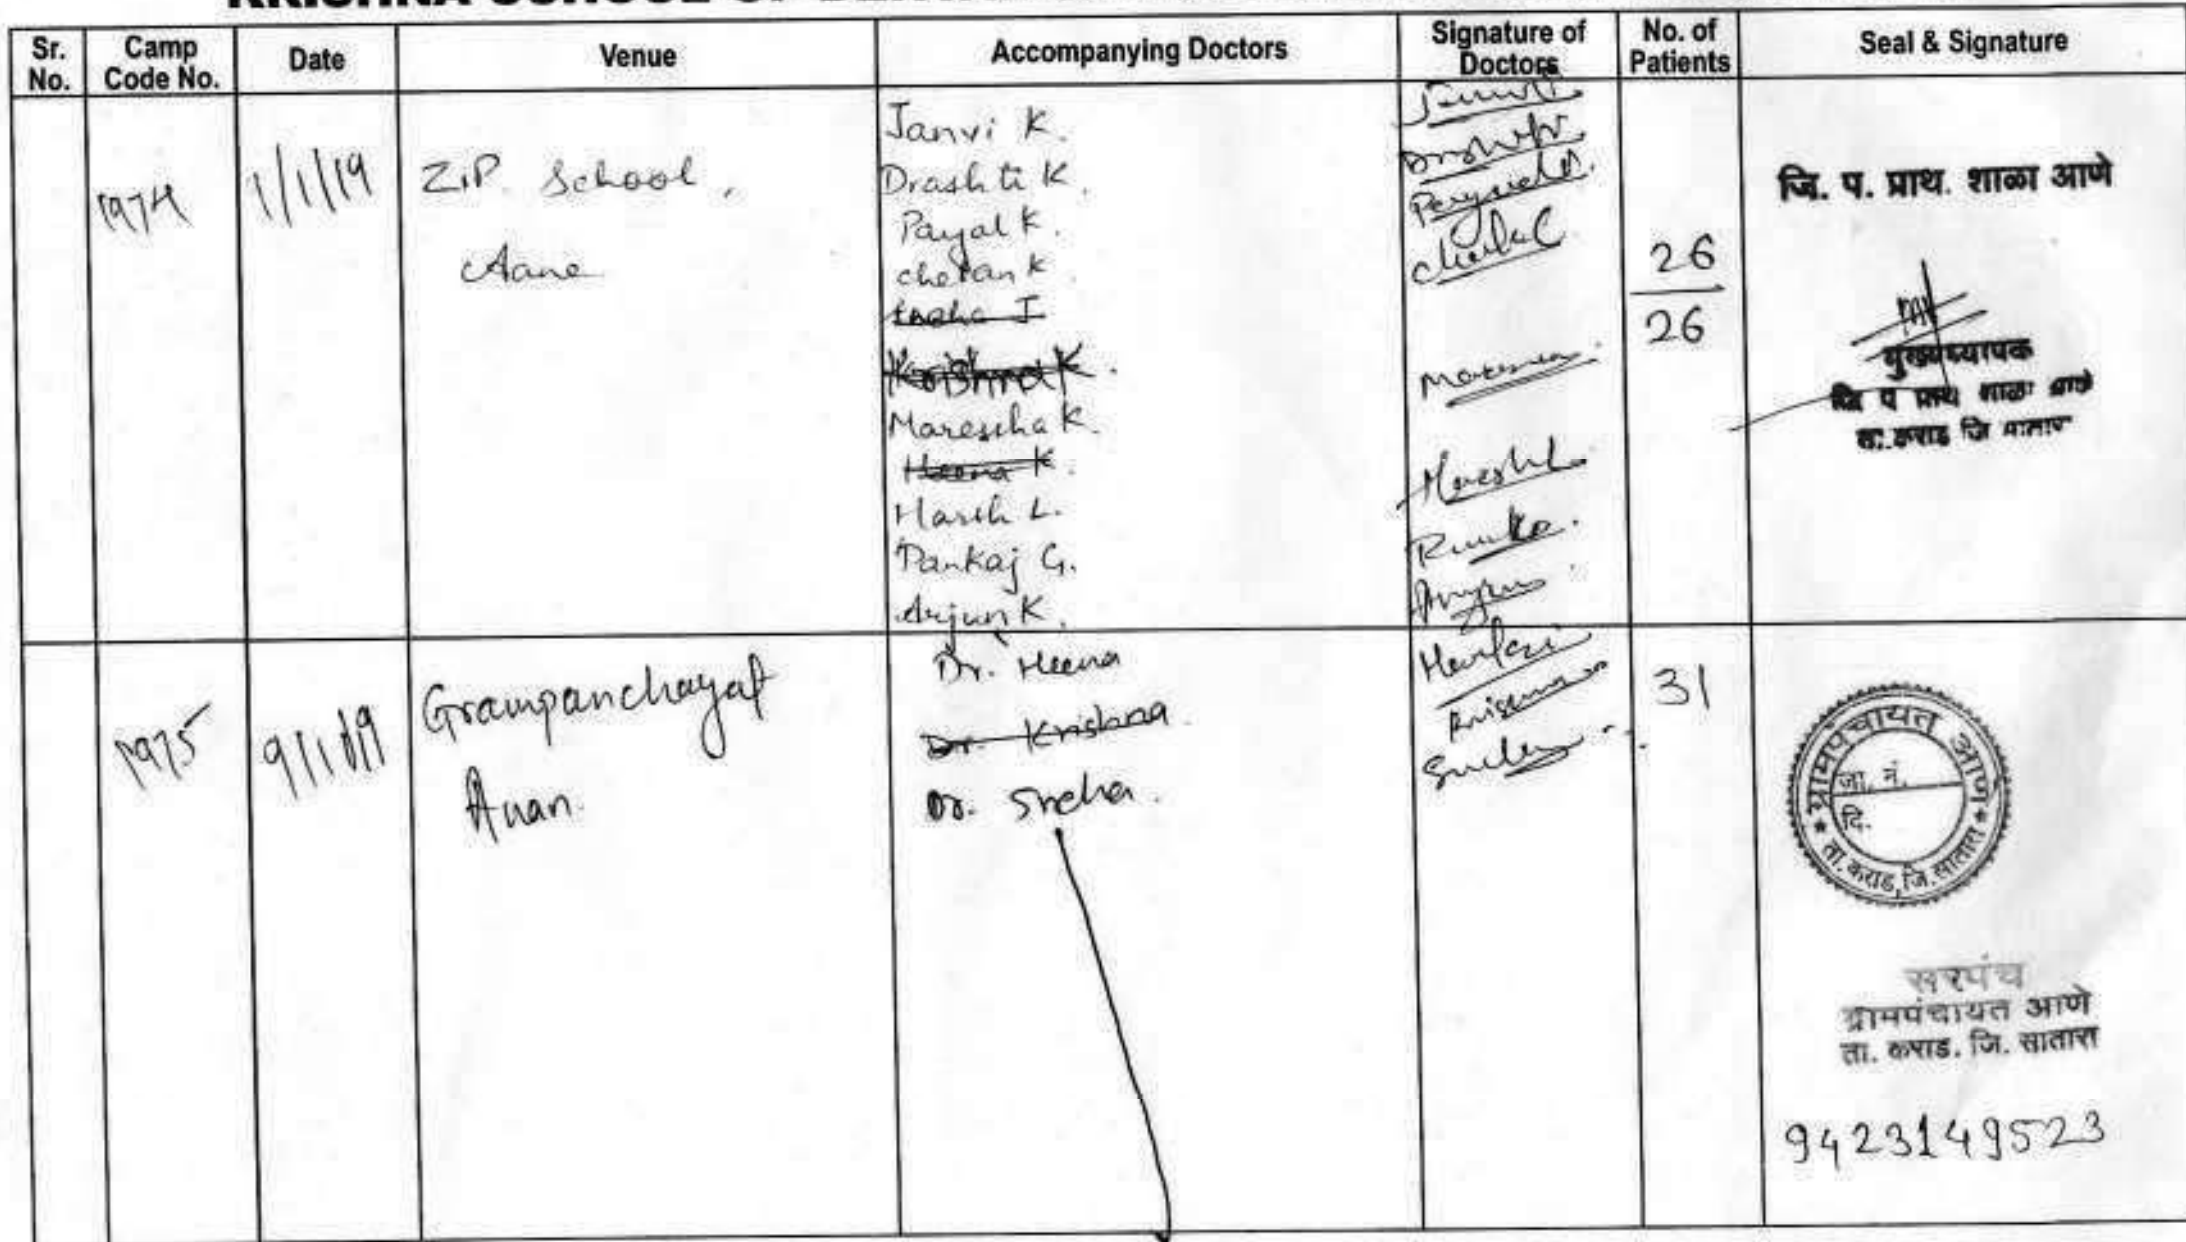 KRISHNA SCHOOL OF
Sr. No. Camp Code No. Date Venue Accompanying Doctors Signature of Doctors No. of Patients Seal & Signature
1974 1/1/19 Z.P. School,
Aane
Janvi K.
Drashti K.
Payal K.
chetan K.
Sneha J
Krishna K.
Marescha K.
Heena K.
Harsh L.
Pankaj G.
Arjun K.
26
26
जि. प. प्राथ. शाळा आणे
मुख्याध्यापक
जि प प्राथ शाळा आणे
ता. कराड जि सातारा
1975 9/1/19 Grampanchayat
Anan.
Dr. Heena
Dr. Krishna.
Dr. Sneha.
31
ग्रामपंचायत आणे
जा. नं.
दि.
ता. कराड, जि. सातारा
सरपंच
ग्रामपंचायत आणे
ता. कराड. जि. सातारा
9423149523